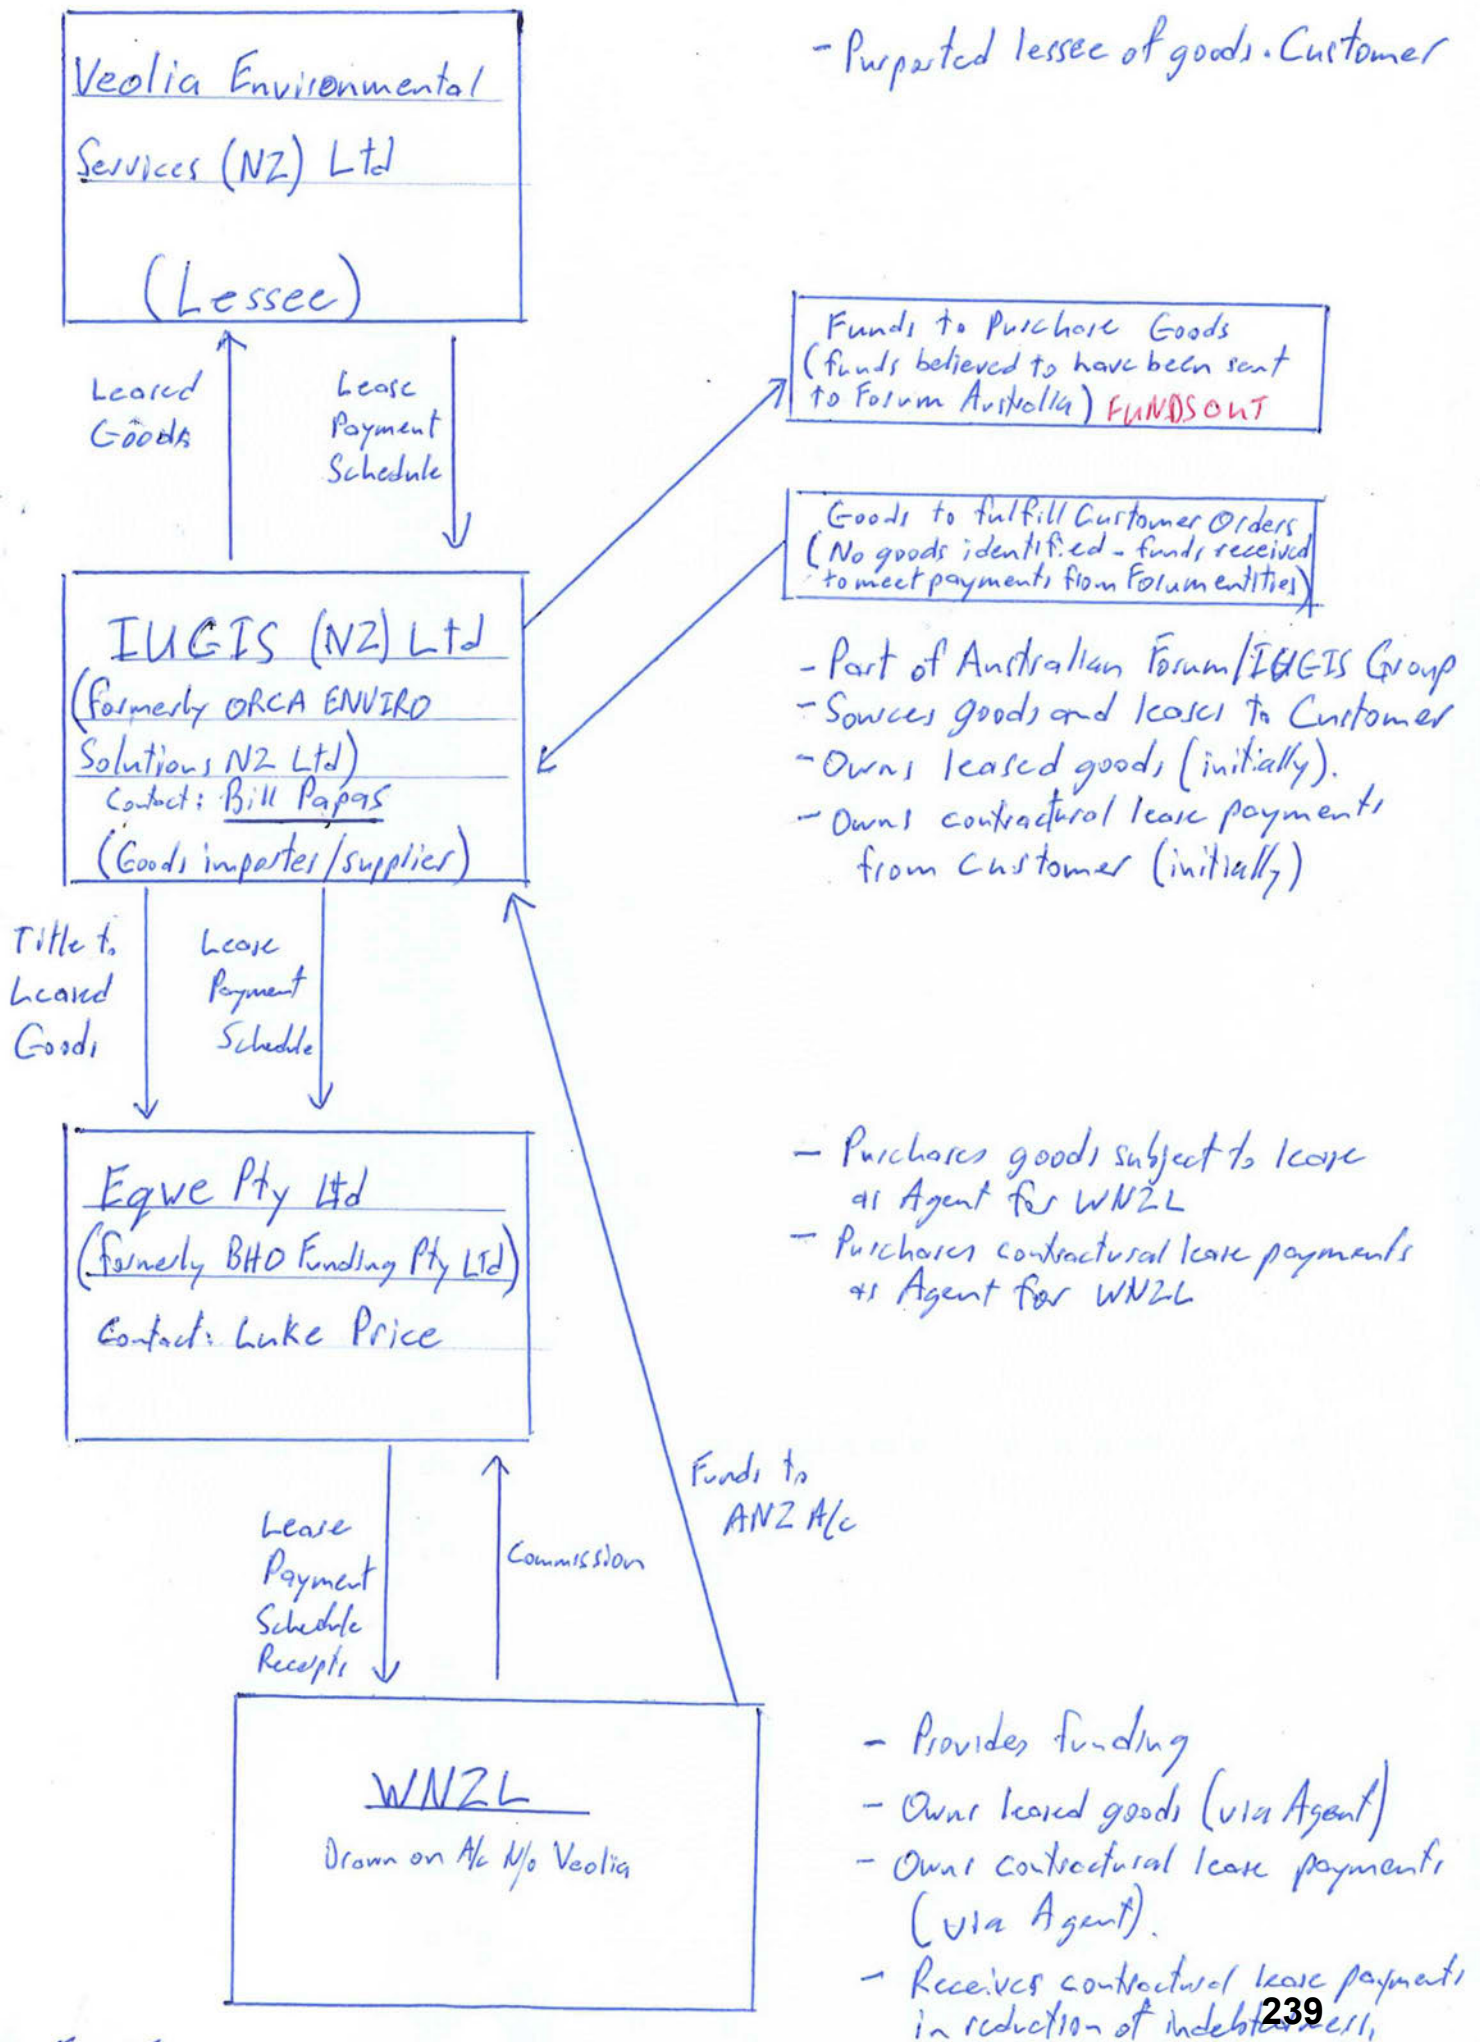 Veolia Environmental
Services (NZ) Ltd
(Lessee)
- Purported lessee of goods. Customer
Leased
Goods
Lease
Payment
Schedule
Funds to Purchase Goods
(funds believed to have been sent
to Forum Australia) FUNDS OUT
Goods to fulfill Customer Orders
(No goods identified - funds received
to meet payments from Forum entities)
IUGIS (NZ) Ltd
(formerly ORCA ENVIRO
Solutions NZ Ltd)
Contact: Bill Papas
(Goods importer/supplier)
- Part of Australian Forum/IUGIS Group
- Sources goods and leases to Customer
- Owns leased goods (initially).
- Owns contractural lease payments
from Customer (initially)
Title to
Leased
Goods
Lease
Payment
Schedule
Eqwe Pty Ltd
(formerly BHO Funding Pty Ltd)
Contact: Luke Price
- Purchases goods subject to lease
as Agent for WNZL
- Purchases contractural lease payments
as Agent for WNZL
Lease
Payment
Schedule
Receipts
Commission
Funds to
ANZ A/c
WNZL
Drawn on A/c N/o Veolia
- Provides funding
- Owns leased goods (via Agent)
- Owns contractural lease payments
(via Agent).
- Receives contractural lease payments
in reduction of indebtedness,
239